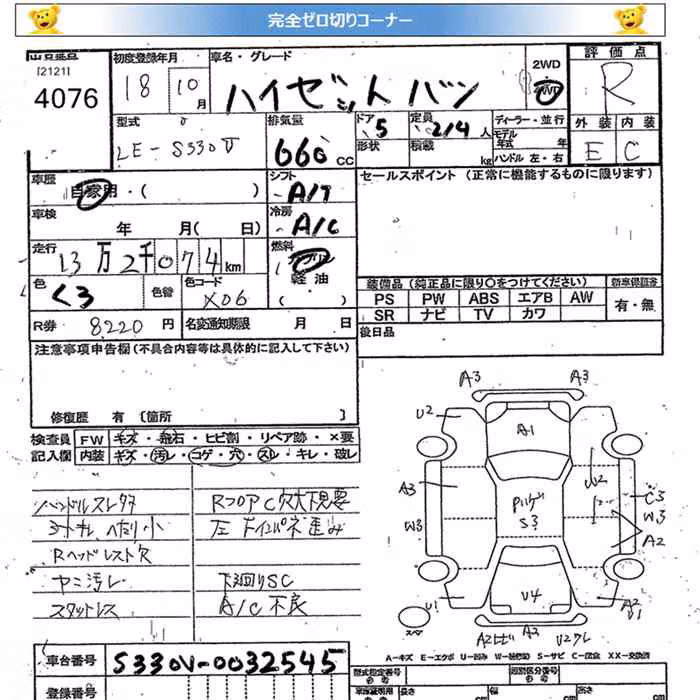 完全ゼロ切りコーナー
出品番号
[2121]
4076
初度登録年月
18 10月
車名・グレード
ハイゼットバン
2WD
4WD
評価点
R
外装 内装
E C
型式
LE-S330V
排気量
660cc
ドア
5
形状
定員
2/4人
積載
kg
ディーラー・並行
モデル
年式 年
ハンドル 左・右
車歴
自家用・( )
シフト
A/T
セールスポイント (正常に機能するものに限ります)
車検
年 月( 日)
冷房
A/C
走行
13万2千074km
燃料
ガソリン
軽油
( )
色
くろ
色替
色コード
X06
装備品 (純正品に限り○をつけてください)
新車保証書
PS PW ABS エアB AW
SR ナビ TV カワ
有・無
R券 8220円
名変通知期限 月 日
後日品
注意事項申告欄(不具合内容等は具体的に記入して下さい)
修復歴 有 [箇所 ]
検査員
記入欄
FW キズ・飛石・ヒビ割・リペア跡・×要
内装 キズ・汚レ・コゲ・穴・スレ・キレ・破レ
ハンドルスレタオ
シートキレ ヘタリ小
Rヘッドレスト欠
ヤニ汚レ
スタットレス
RフロアC穴大下見要
左ドインパネ歪み
下廻りSC
A/C不良
A3 A3
U2
A1
A3
W3
U2
Pルーゲ
S3
C3
W3
A2
U1
U4
A2
U1
スペア
A2ヒビ A2 U2クレ
A-キズ E-エクボ U-凹み W-補修跡 S-サビ C-腐食 XX-交換済
車台番号 S330V-0032545
登録番号
型式指定番号
類別区分番号
長さ
幅
高さ